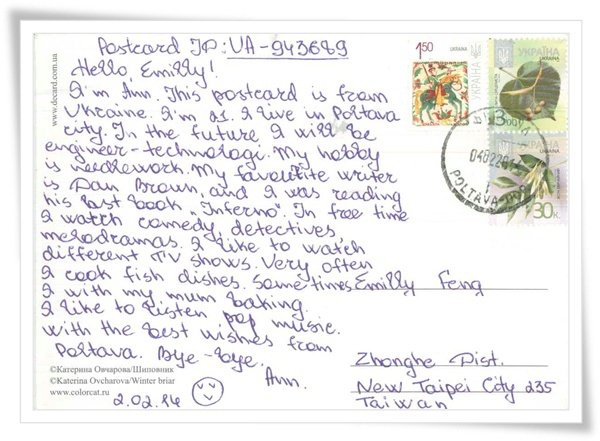 Postcard ID: UA-943689
Hello, Emilly!
I'm Ann. This postcard is from
Ukraine. I'm 21. I live in Poltava
city. In the future I will be
engineer-technologi. My hobby
is needlework. My favoutite writer
is Dan Brown, and I was reading
his last book "Inferno". In free time
I watch comedy, detectives
melodramas. I like to watch
different TV shows. Very often
I cook fish dishes. Sometimes
I with my mum baking.
I like to listen pop music.
With the best wishes from
Poltava. Bye-bye.
Ann.
2.02.14
Emilly Feng
Zhonghe Dist.
New Taipei City 235
Taiwan
www.decard.com.ua
©Катерина Овчарова/Шиповник
©Katerina Ovcharova/Winter briar
www.colorcat.ru
1.50
UKRAINA
УКРАЇНА
УКРАЇНА
UKRAINA
3.00
УКРАЇНА
30к
ПОЛТАВА
POLTAVA